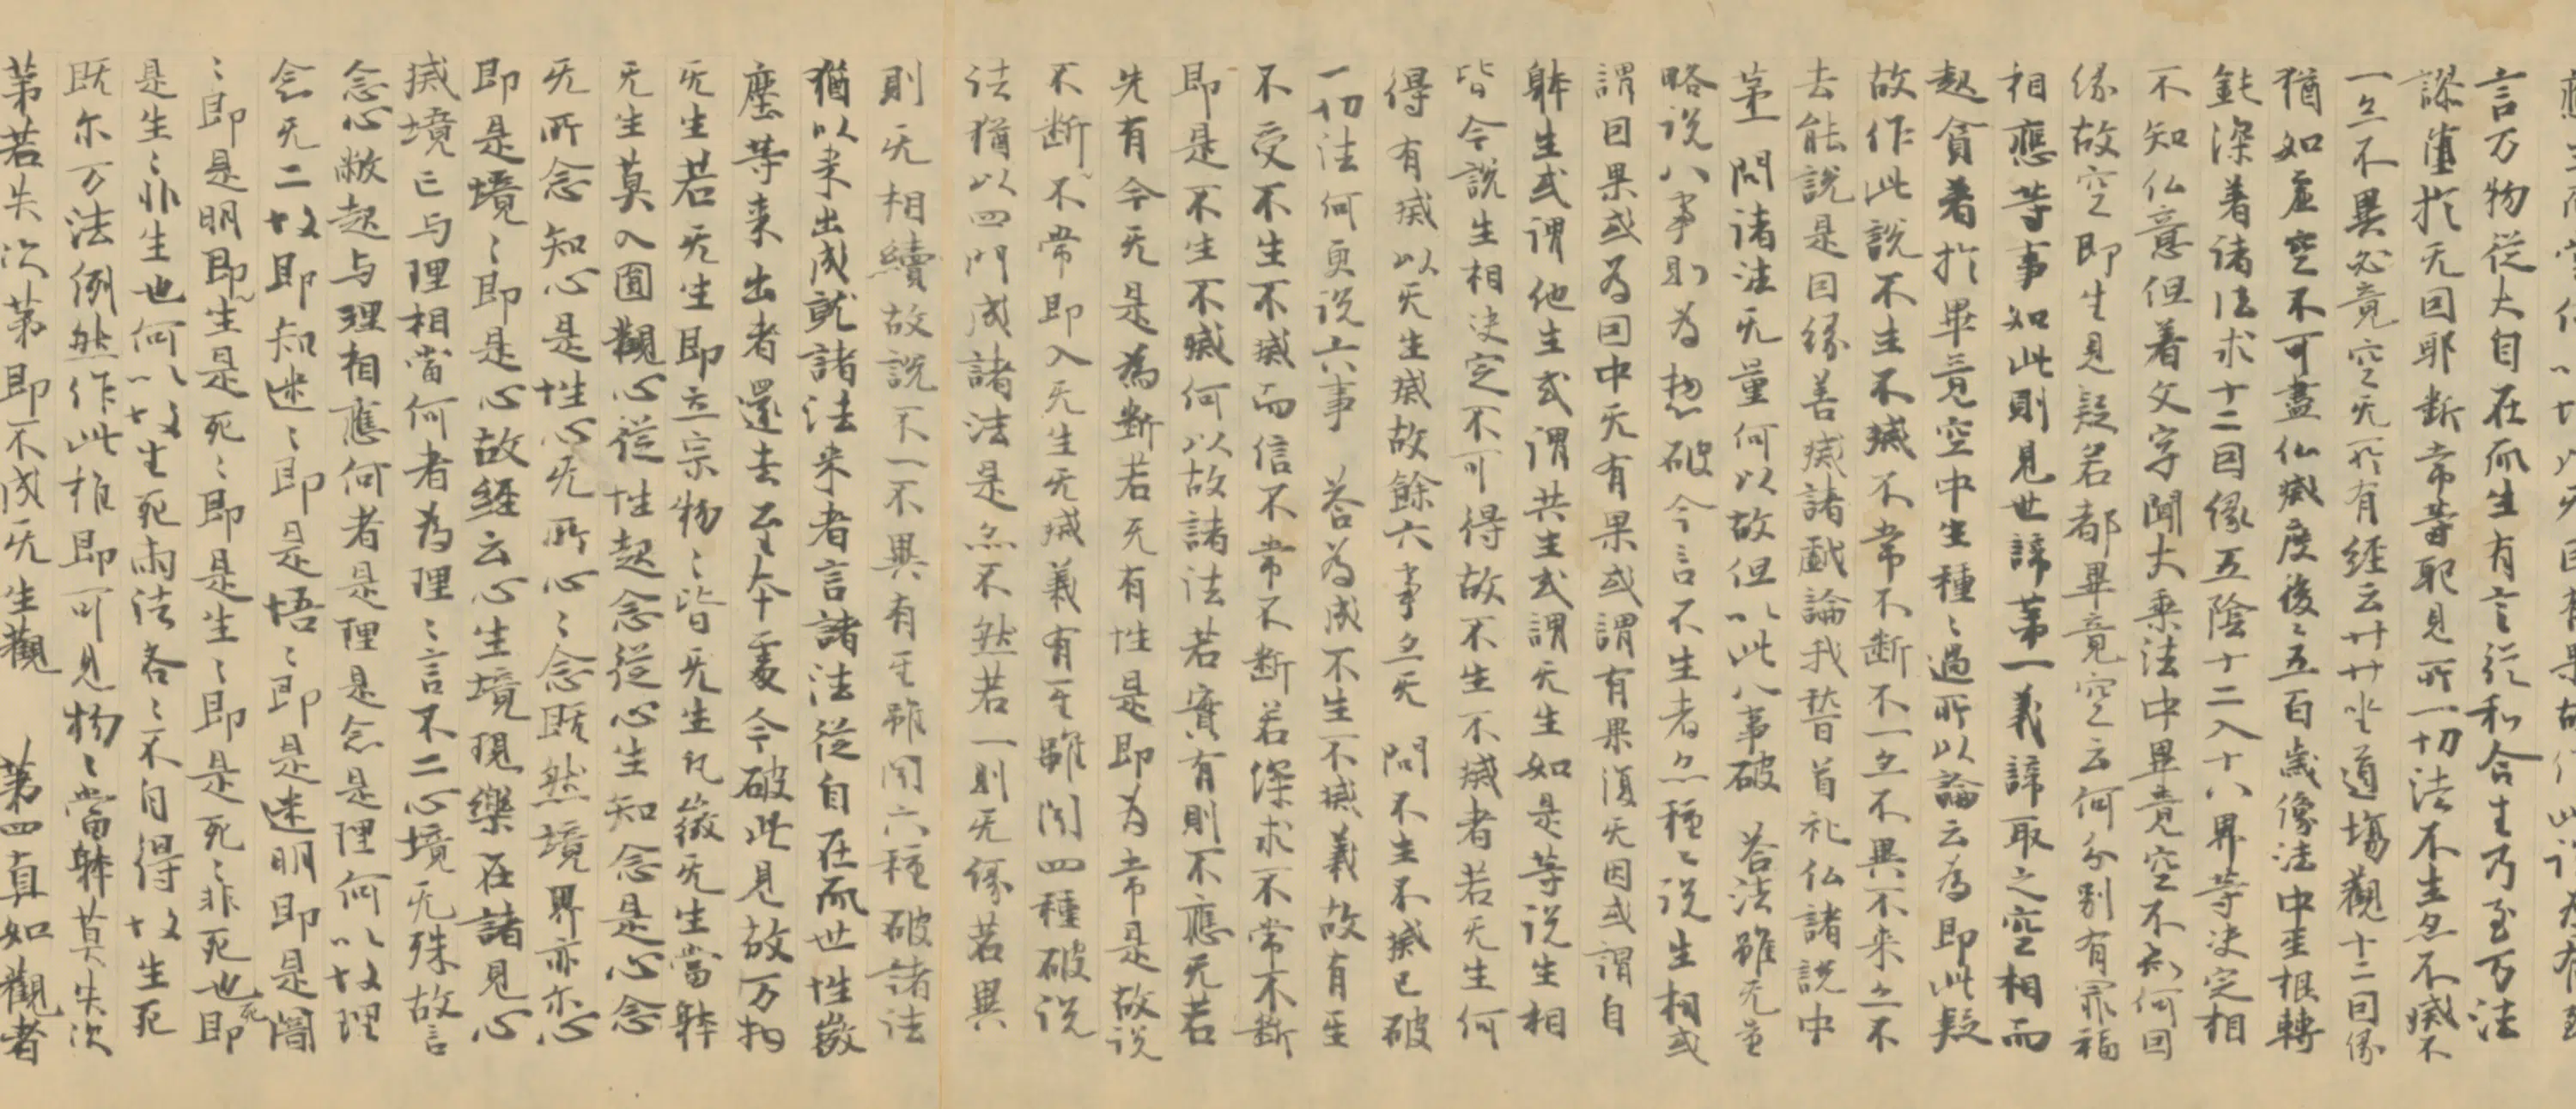 言万物從大自在而生有言從和合生乃至万法
謬墮於无因耶断常等耶見所一切法不生亦不滅不
一亦不異必竟空无所有経云卄卄坐道場觀十二因縁
猶如虚空不可盡仏滅度後〻五百歳像法中根轉
鈍深着諸法求十二因縁五陰十二入十八界等决定相
不知仏意但着文字聞大乗法中畢竟空不知何因
縁故空即生見疑若都畢竟空云何分别有罪福
相應等事如此則見世諦第一義諦取之空相而
起貪著於畢竟空中生種〻過所以論云為即此疑
故作此説不生不滅不常不断不一亦不異不来亦不
去能説是因縁善滅諸戲論我䭫首礼仏諸説中
第一 問諸法无量何以故但以此八事破 荅法雖无量
略説八事則為惣破今言不生者亦種〻説生相或
謂因果或為因中无有果或謂有果復无因或謂自
躰生或謂他生或謂共生或謂无生如是等説生相
皆今説生相决定不可得故不生不滅者若无生何
得有滅以无生滅故餘六事亦无 問不生不滅已破
一切法何更説六事 荅為成不生不滅義故有
不受不生不滅而信不常不断若深求不常不断
即是不生不滅何以故諸法若實有則不應无若
先有今无是為断若先有性是即為常是故説
不断不常即入无生无滅義有雖聞四種破説
法猶以四門成諸法是亦不然若一則无縁若異
則无相續故説不一不異有雖聞六種破諸法
猶以来出成就諸法来者言諸法從自在而世性微
塵等来出者還去至本處今破此見故万物
无生若无生即立宗物〻皆无生微无生當躰
无生莫入圓觀心從性起念從心生知念是心念
无所念知心是性心无所心〻念既然境界亦亦心
即是境〻即是心故経云心生境現樂在諸見心
滅境亡与理相當何者為理〻言不二心境无殊故言
念心敝起与理相應何者是理是念是理何以故理
念无二故即知迷〻即是悟〻即是迷明即是闇
〻即是明即生是死〻即是生〻即是死〻非死也即
是生〻非生也何以故生死兩法各〻不自得故生死
既尓万法例然作此推即可見物〻當躰莫失次
第若失次第即不成无生觀 第四真如觀者